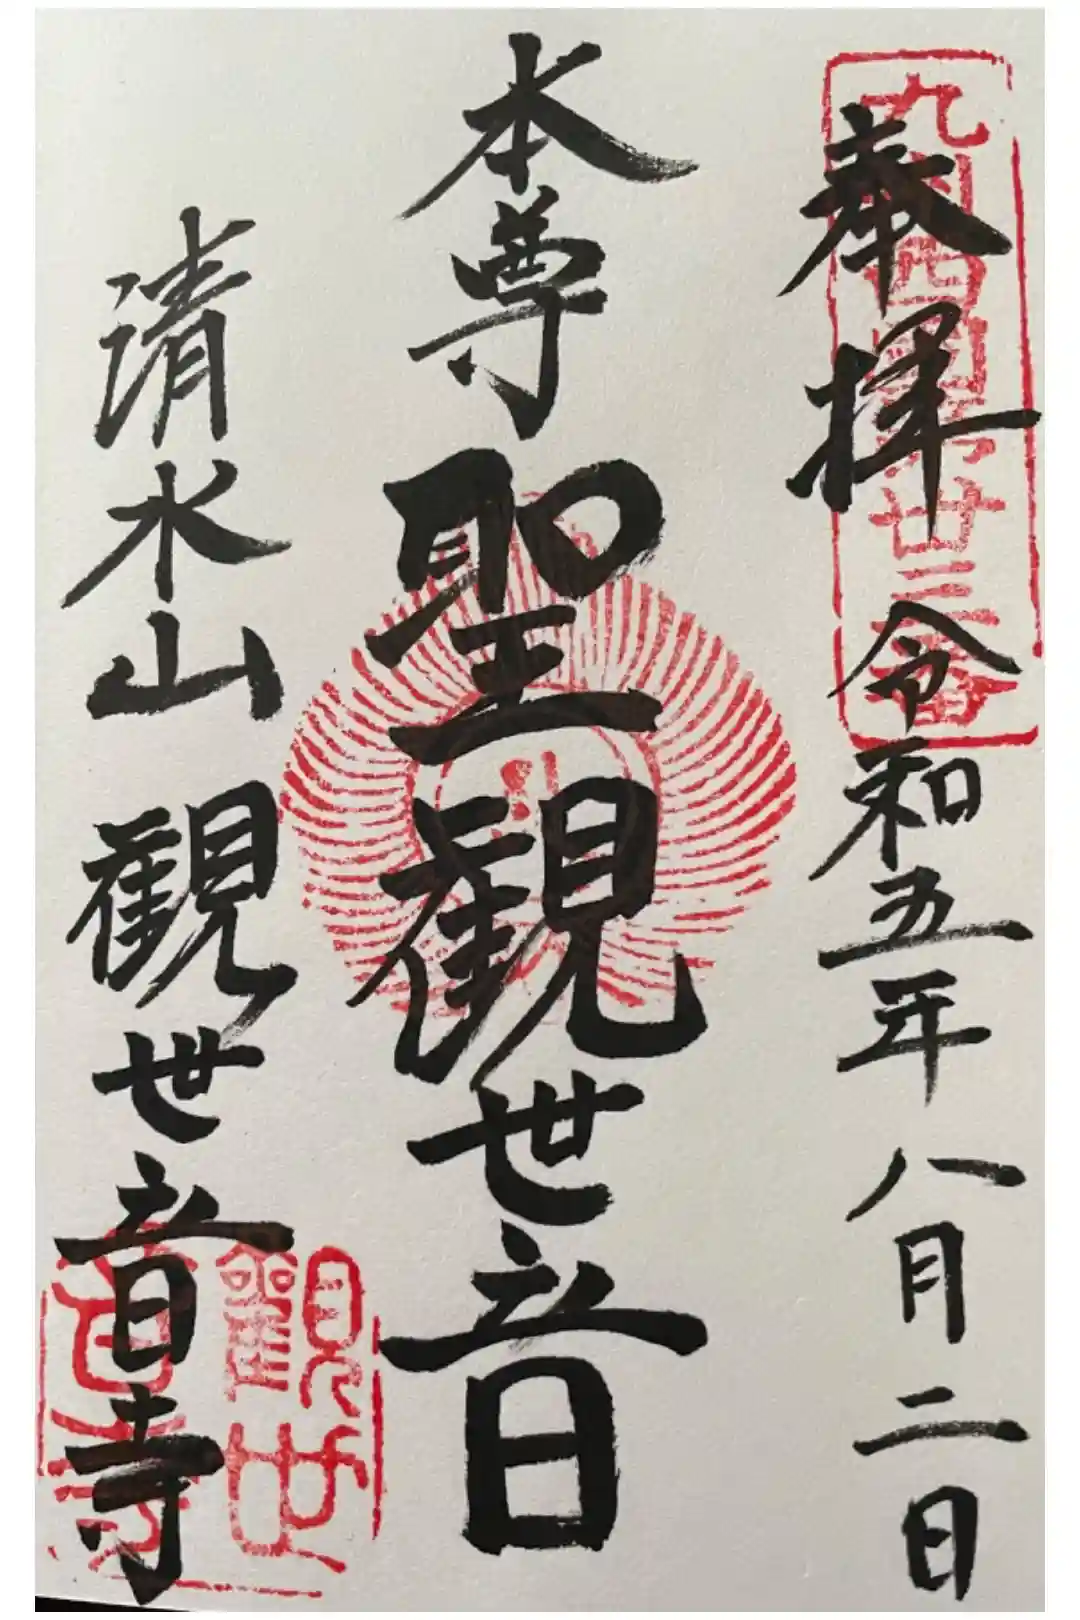 九州西国第卅三番
奉拝 令和五年八月二日
本尊 聖観世音
清水山 観世音寺
観世音寺